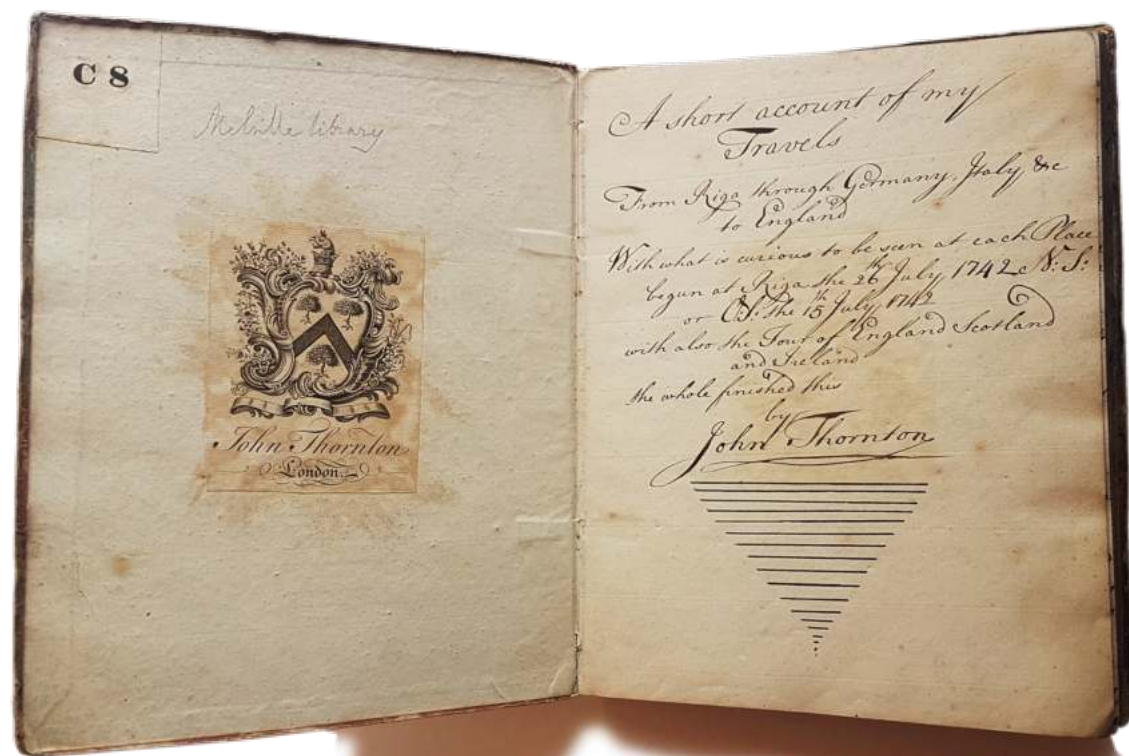 C 8
Melville library
John Thornton
London.
A short account of my
Travels
From Riga through Germany, Italy &c
to England
With what is curious to be seen at each Place
begun at Riga the 26th July 1742 N: S:
or O: S: the 15th July 1742
with also the Tour of England Scotland
and Ireland
the whole finished this
by
John Thornton